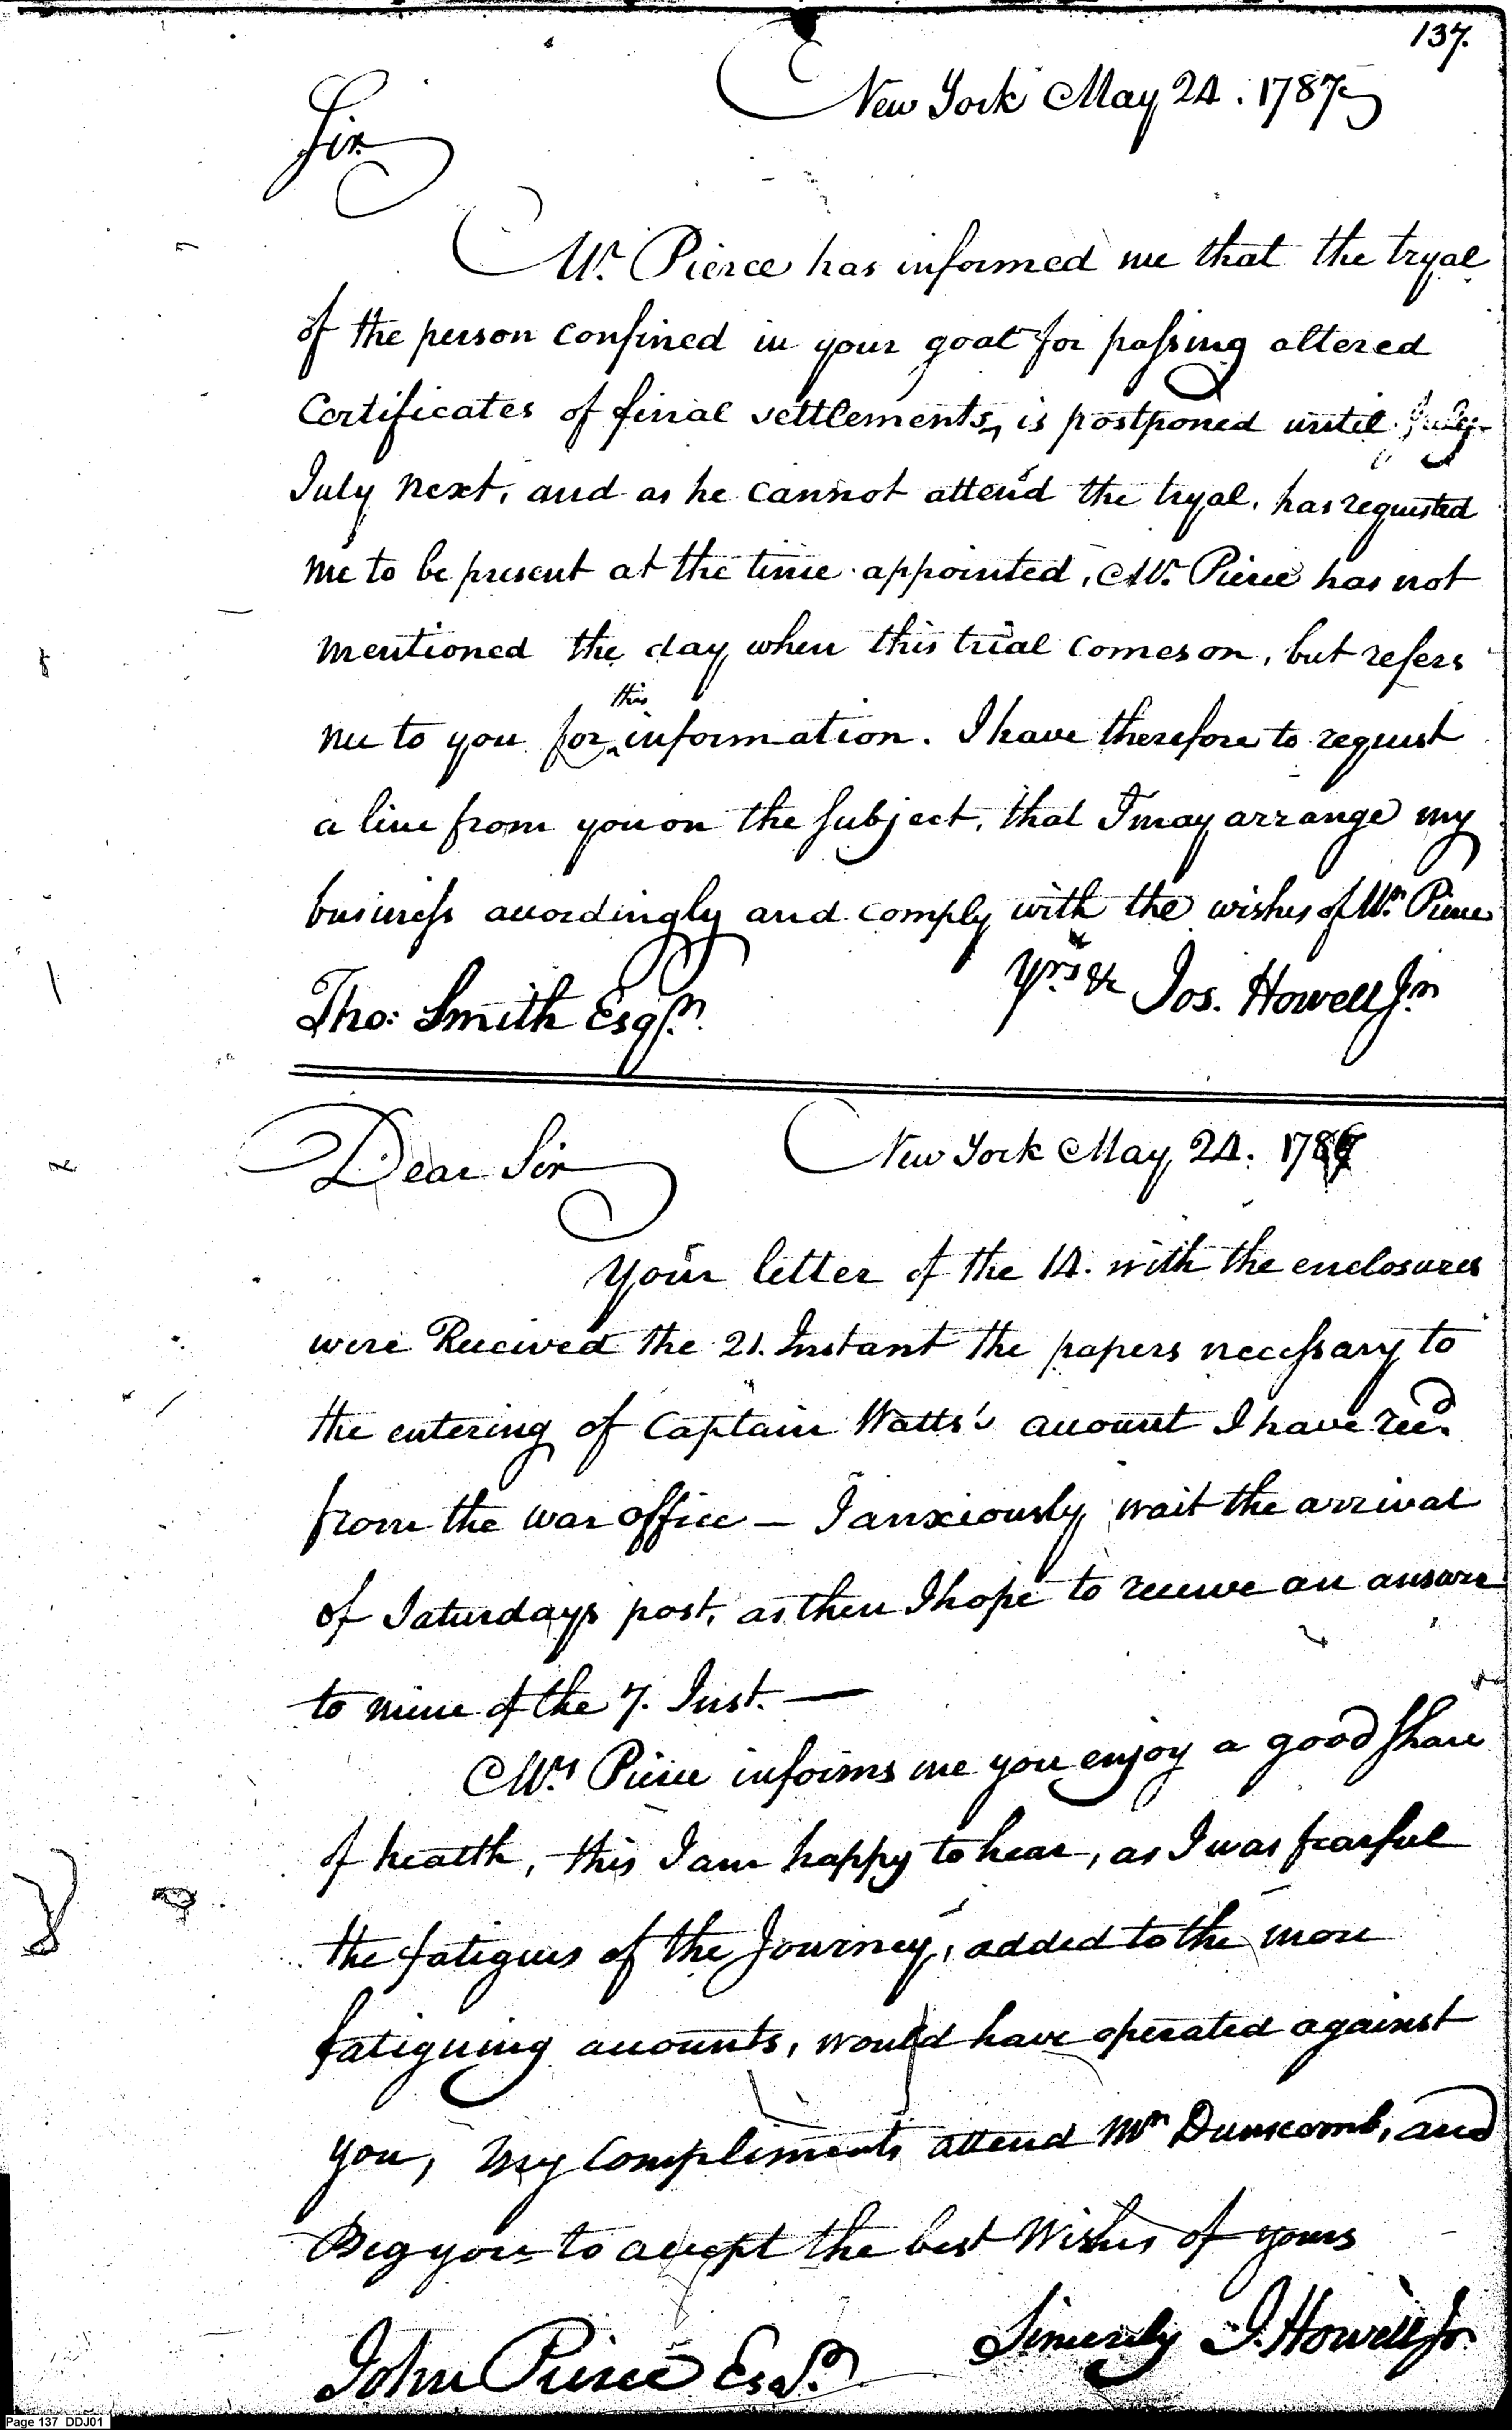 137.
New York May 24. 1787
Sir
Mr. Pierce has informed me that the tryal
of the person confined in your goal for passing altered
Certificates of final settlements, is postponed until July
July next, and as he cannot attend the tryal, has requested
me to be present at the time appointed, Mr. Pierce has not
mentioned the day when this trial comes on, but refers
me to you for this information. I have therefore to request
a line from you on the subject, that I may arrange my
business accordingly and comply with the wishes of Mr. Pierce
Yrs &c Jos. Howell Jr.
Tho: Smith Esqr.
Dear Sir New York May 24. 1787
Your letter of the 14. with the enclosures
were Received the 21. Instant the papers necessary to
the entering of Captain Watts's account I have recd.
from the war office — I anxiously wait the arrival
of Saturdays post, as then I hope to receive an answer
to mine of the 7. Inst. —
Mrs Pierce informs me you enjoy a good share
of health, this I am happy to hear, as I was fearful
the fatigues of the Journey, added to the more
fatiguing accounts, would have operated against
you, my compliments attend Mr Dunscomb, and
Beg you to accept the best Wishes of yours
Sincerely J. Howell Jr.
John Pierce Esqr.
Page 137 DDJ01